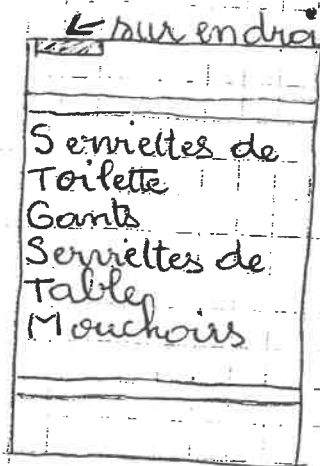 sur endroi
Serviettes de
Toilette
Gants
Serviettes de
Table
Mouchoirs